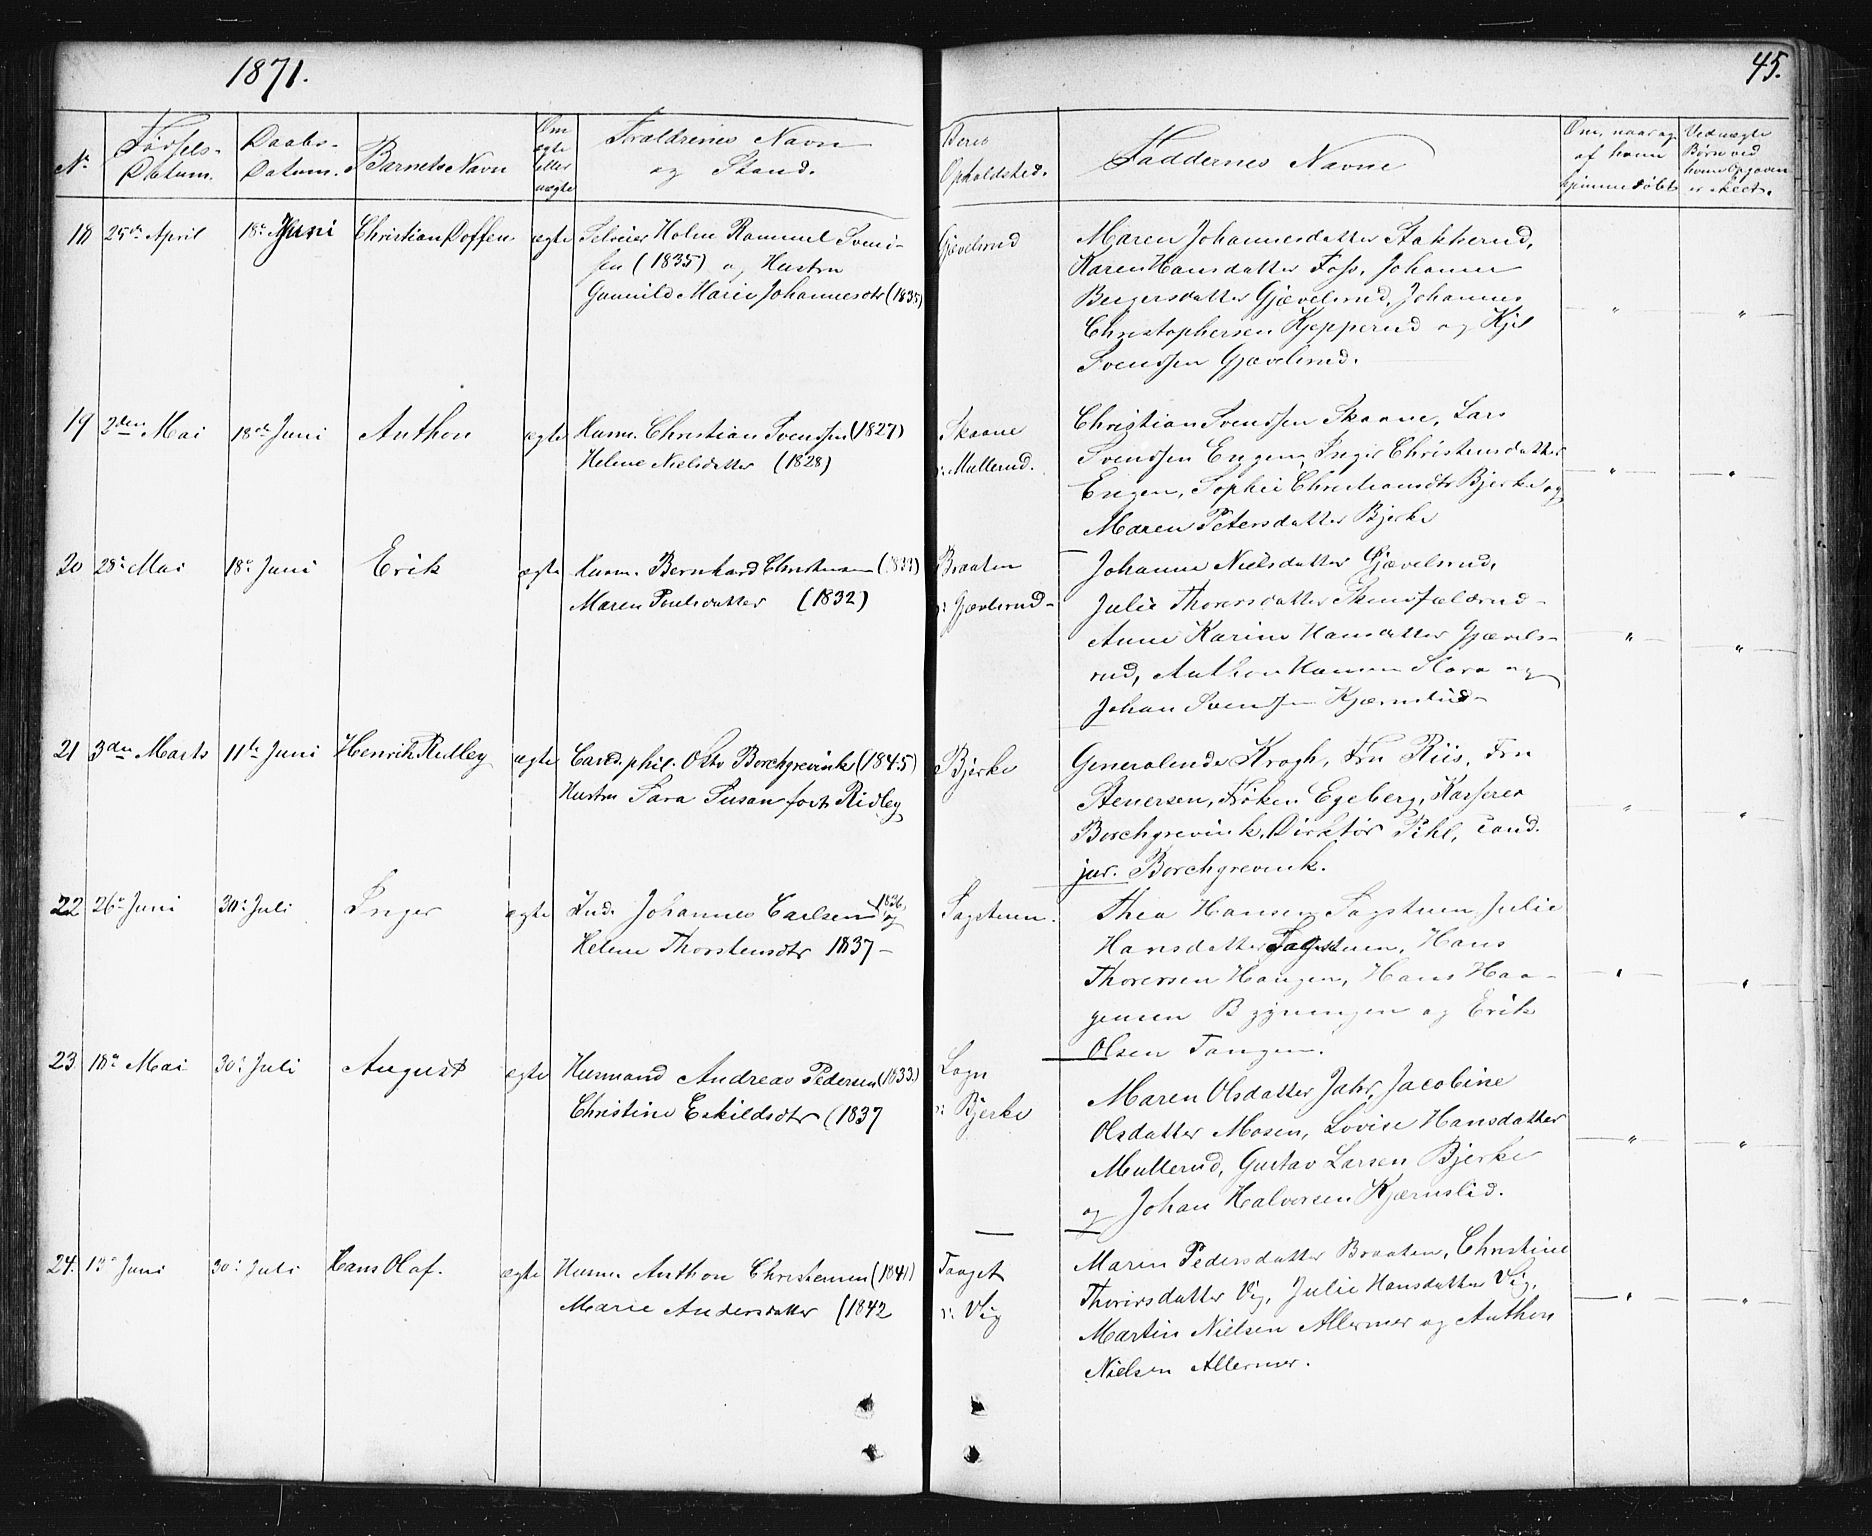 1871.
45.
Nr.
Fødsels-
Datum.
Daabs-
Datum.
Barnets Navn
Om
ægte
eller
uægte
Forældrenes Navn
og Stand.
Deres
Opholdsted.
Faddernes Navne
Om, naar og
af hvem
hjemmedøbt
Ved uægte
Børn ved
hvem Opgaven
er skeet.
18 25de April 18de Juni Christian Doffen ægte
Holm Rommel Svend-
sen (1835) og Hustru
Gunnild Marie Johannesdtr (1835)
Gjævelsrud
Maren Johannesdatter Stakkerud,
Karen Hansdatter Foss, Johanne
Birgersdatter Gjævelsrud, Johannes
Christophersen Kjepperud og Kjel
Svendsen Gjævelsrud.
" "
19 2den Mai 18de Juni Anthon ægte
Husm. Christian Svendsen (1827)
Helene Nielsdatter (1828)
Skaane
v: Mullerud.
Christian Svendsen Skaane, Lars
Svendsen Engen, Inger Christensdatter
Engen, Sophie Christiansdtr Bjerke og
Maren Petersdatter Bjerke
" "
20 28de Mai 18de Juni Erik ægte
Husm. Bernhard Christensen
Maren Poulsdatter (1832)
Braaten
v: Gjævelsrud-
Johanne Nielsdatter Gjævelsrud,
Julie Thorersdatter
Anne Karine Hansdatter Gjævels-
rud, Anthon Hansen Flora og
Johan Svendsen Kjærnslid-
" "
21 3den Marts 11te Juni Henrik Ridley ægte
Cand. phil. Otto Borchgrevink (1845)
Hustru Sara Susan født Ridley
Bjerke
Generalinde Krogh, Fru Riis, Fru
Stenersen, Frøken Egeberg, Kasserer
Borchgrevink, Direktør Pihl, cand.
jur. Borchgrevink.
" "
22 26de Juni 30te Juli Inger ægte
Ind. Johannes Carlsen 1836, og
Helene Thorstensdtr 1837-
Sagstuen.
Thea Hansen Sagstuen, Julie
Hansdatter Sagstuen, Hans
Thorersen Haugen, Hans Haa-
gensen Bygningen og Erik
Olsen Tangen.
" "
23 18de Mai 30te Juli August ægte
Husmand Andreas Pedersen (1833.)
Christine Eskildsdtr (1837
Løgn
v: Bjerke
Maren Olsdatter Jahr, Jacobine
Olsdatter Mosen, Lovise Hansdatter
Mullerud, Gustav Larsen Bjerke
og Johan Halvorsen Kjærnslid.
" "
24. 13de Juni 30te Juli Hans Olaf. ægte
Husm. Anthon Christensen (1841)
Marie Andersdatter (1842
Taaget
v: Vig
Maren Pedersdatter Braaten, Christine
Thorersdatter Vig, Julie Hansdatter Vig,
Martin Nielsen Allermer og Anthon
Nielsen Allermer.
" "